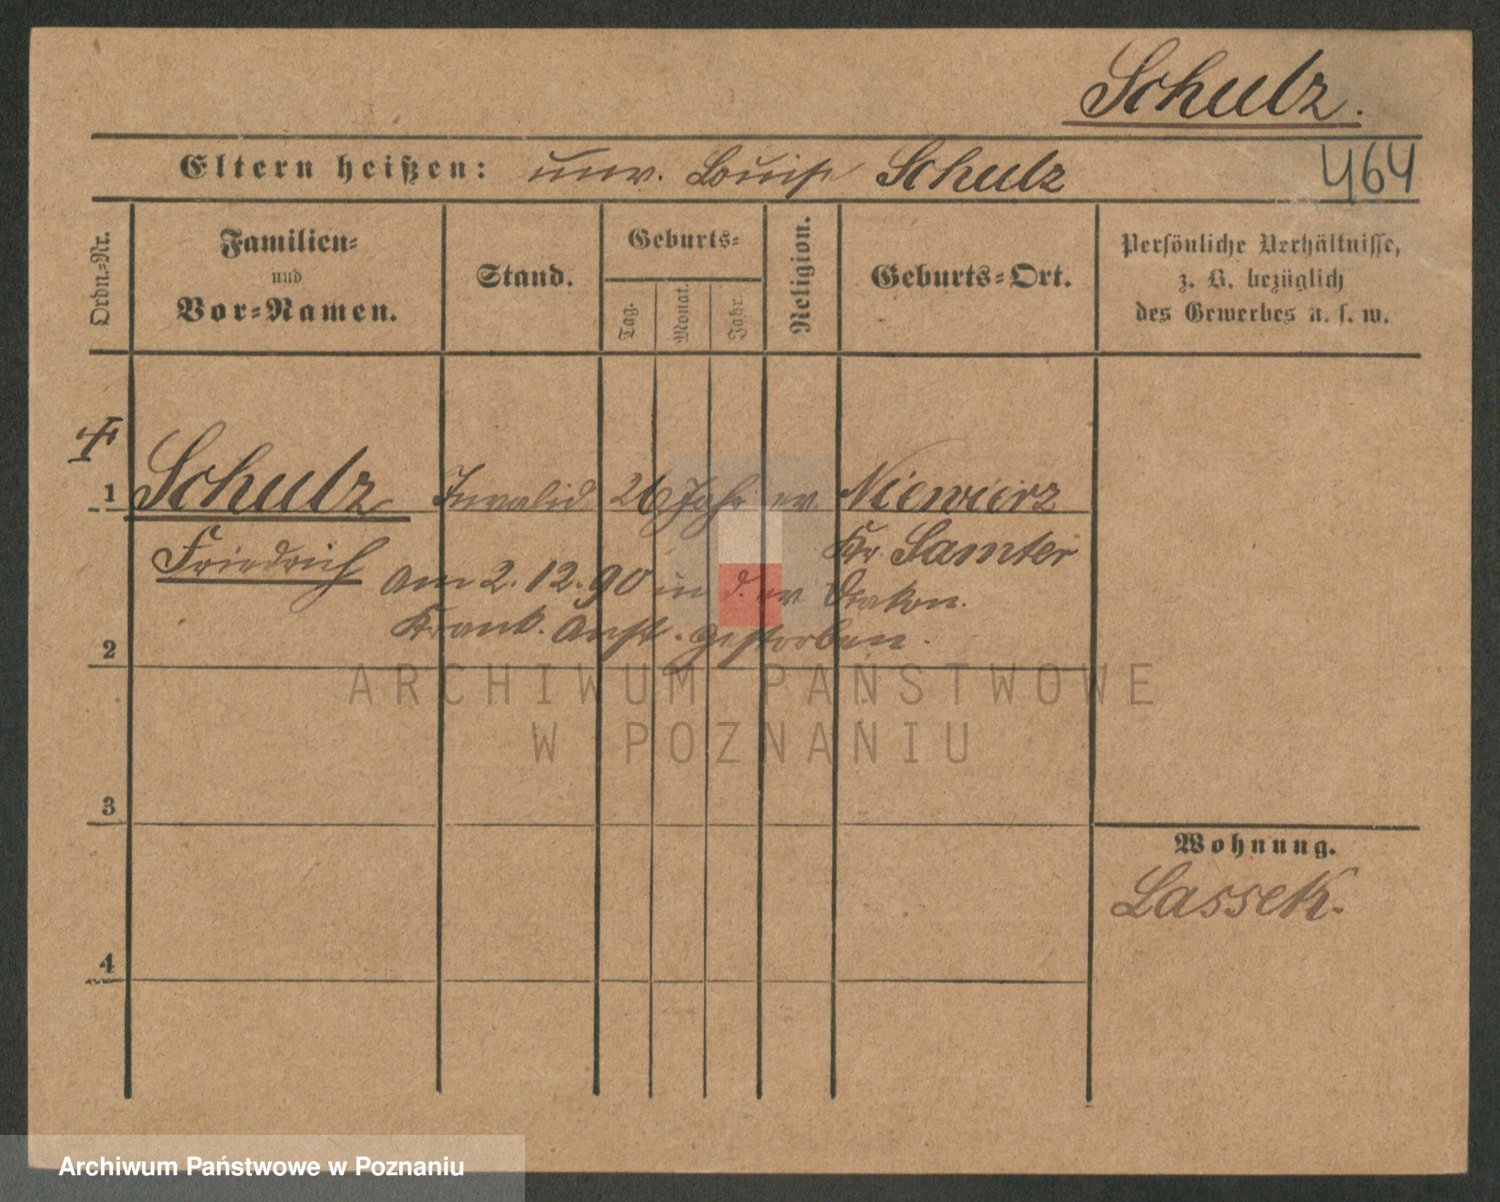 Schulz.
Eltern heißen: unv. Louise Schulz
464
Ordn=Nr.
Familien=
und
Vor=Namen.
Stand.
Geburts=
Tag.
Monat.
Jahr.
Religion.
Geburts=Ort.
Persönliche Verhältnisse,
z. B. bezüglich
des Gewerbes u. s. w.
1
Schulz Invalid 26 Jahr ev. Niewierz
Friedrich
Kr Samter
Am 2. 12. 90 in d. ev Diakon.
Krank. Anst. gestorben.
2
3
4
Wohnung.
Lassek.
ARCHIWUM PAŃSTWOWE
W POZNANIU
Archiwum Państwowe w Poznaniu